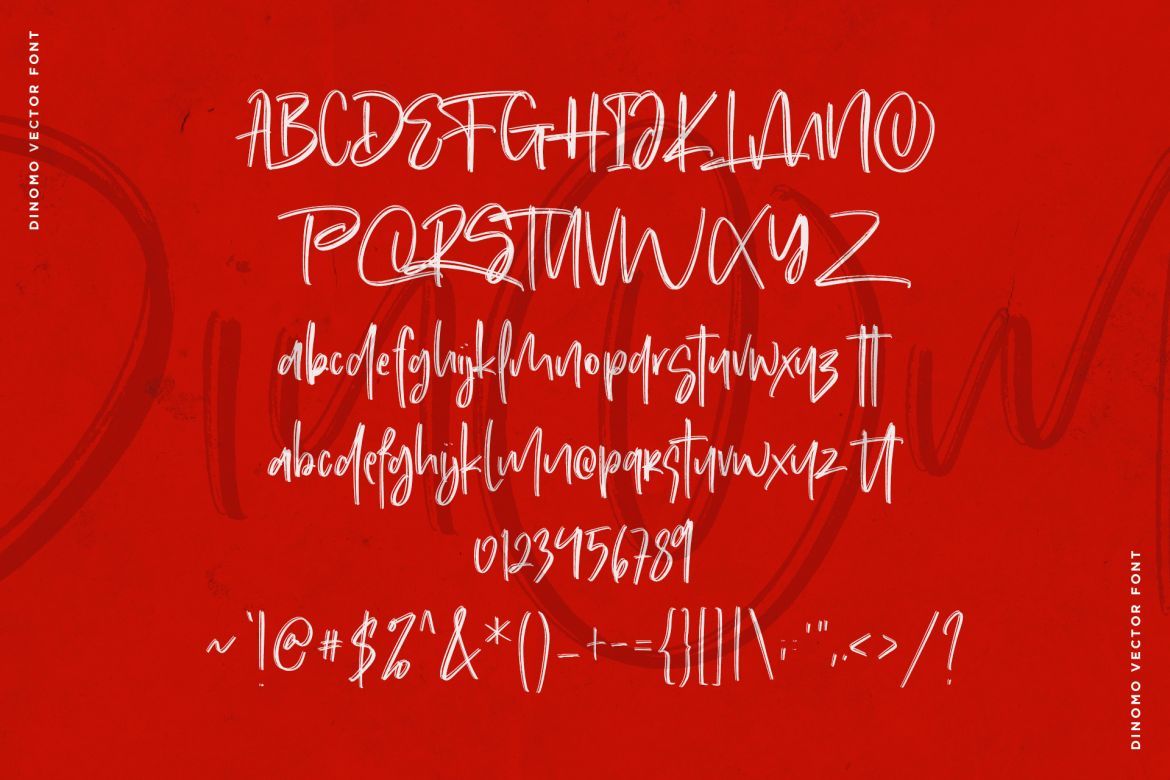 DINOMO VECTOR FONT
ABCDEFGHIJKLMNO
PQRSTUVWXYZ
abcdefghijklmnopqrstuvwxyz tt
abcdefghijklmnopqrstuvwxyz tt
0123456789
~`!@#$%^&*()_+-={}[]|\;:'"",.<>/?
DINOMO VECTOR FONT